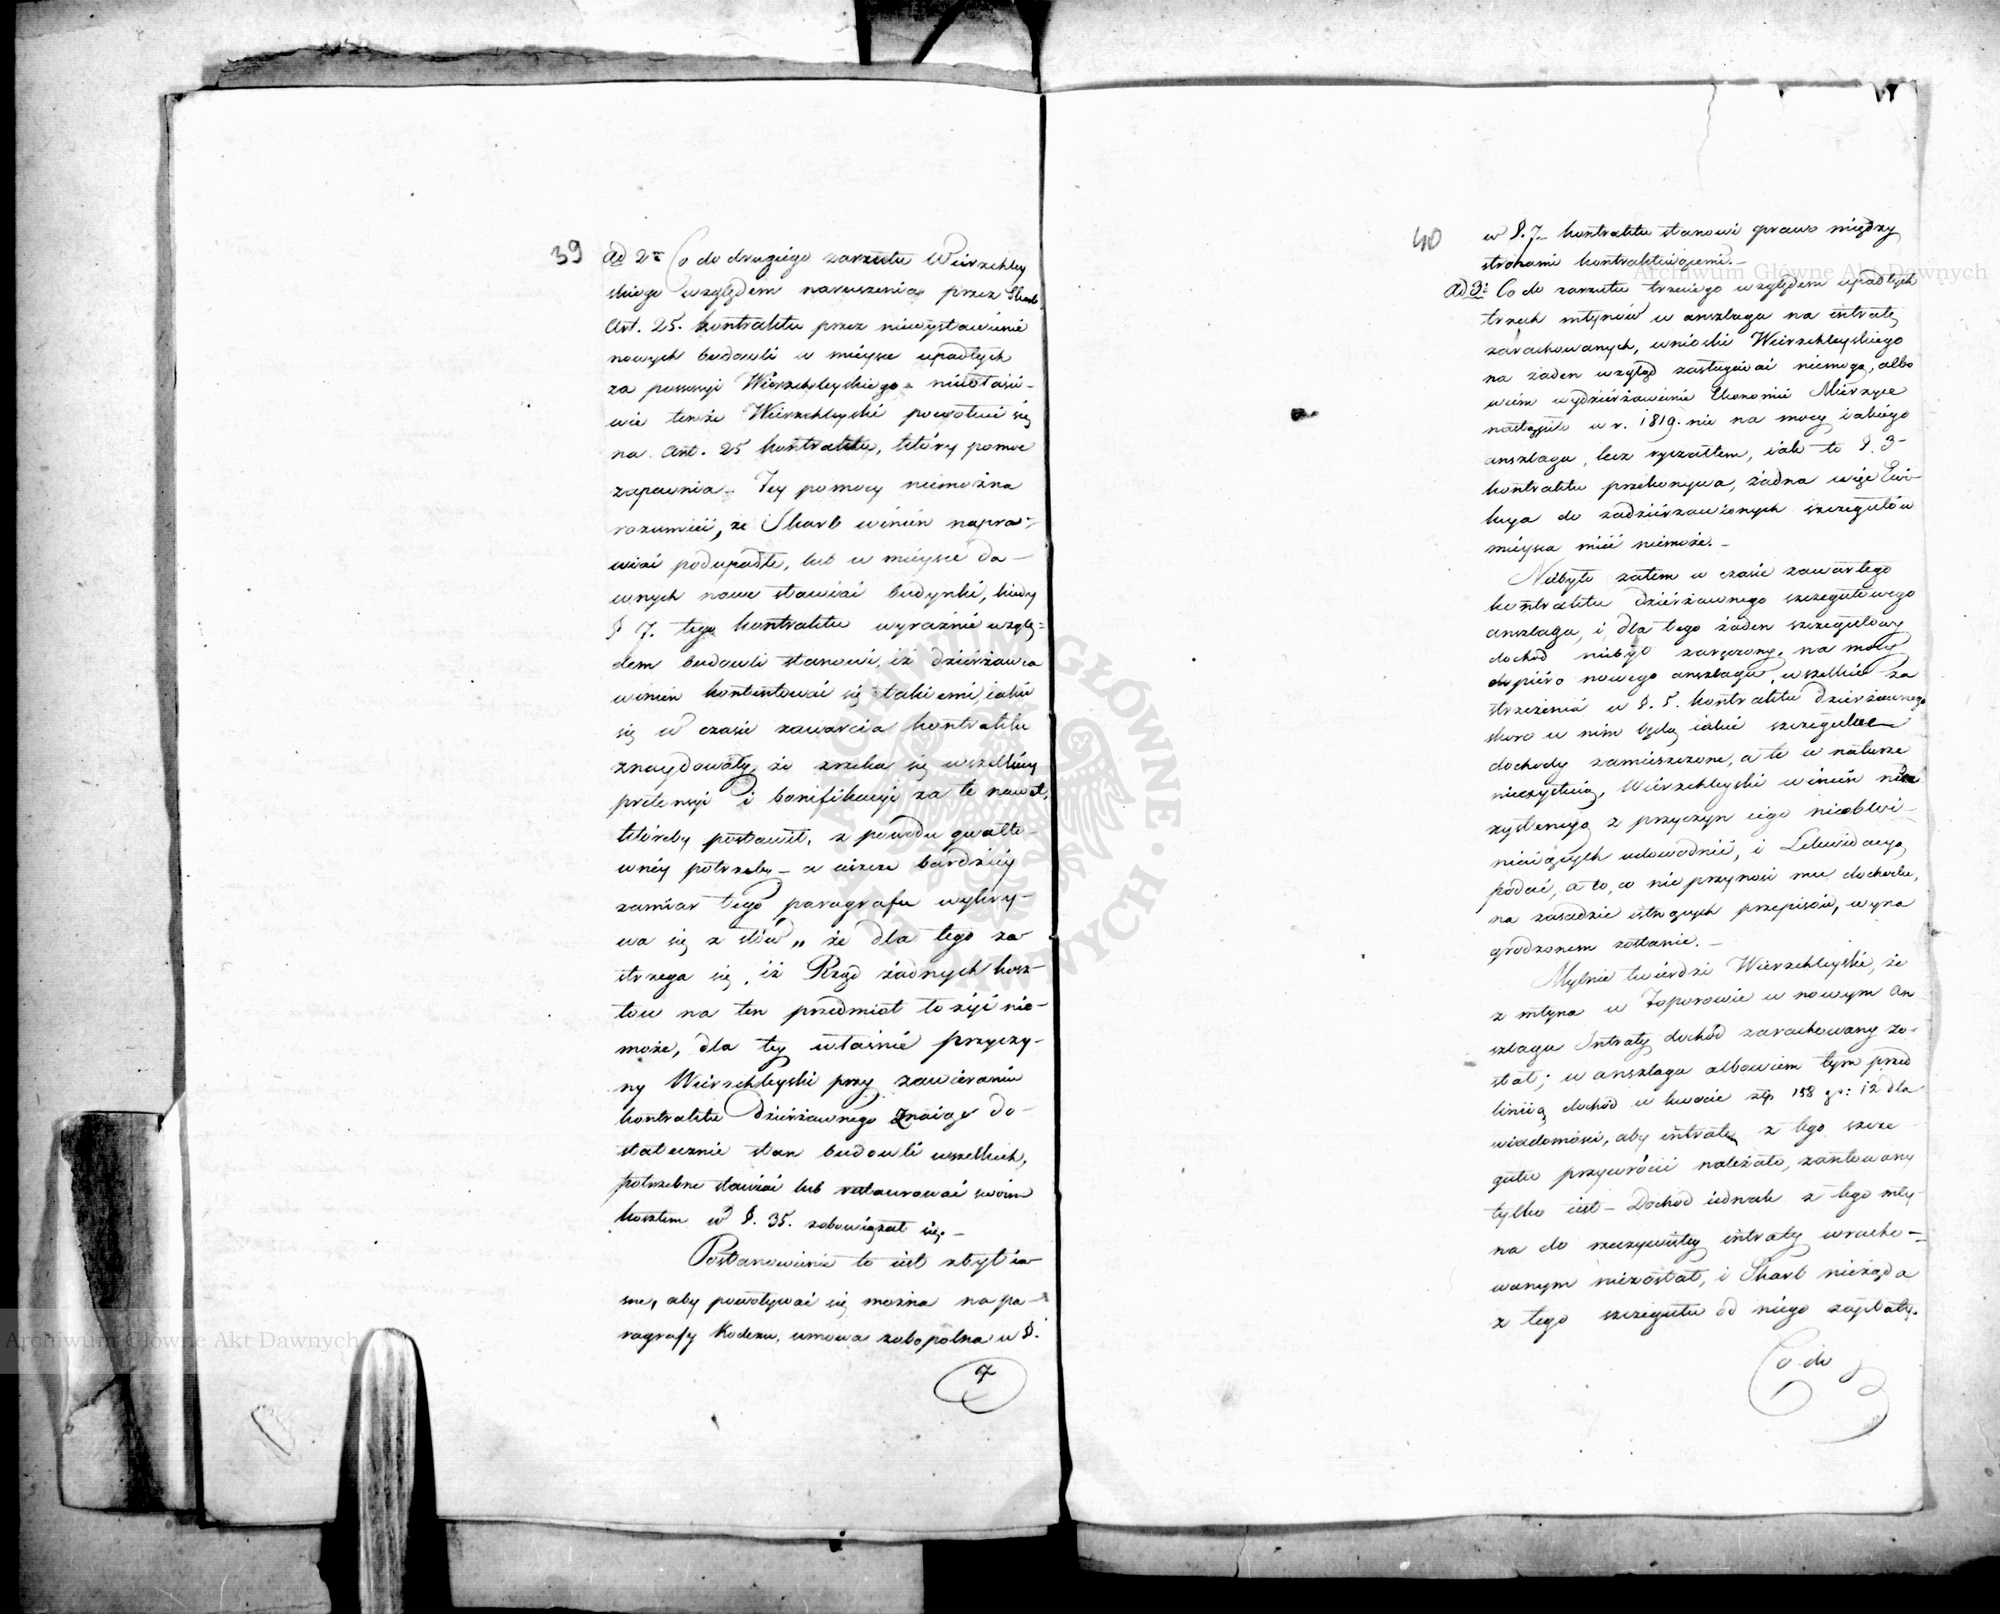 39
Ad 2m Co do drugiego zarzutu Wierzchley
skiego względem naruszenia przez Skarb
Art. 25. kontraktu przez niewystawienie
nowych budowli w mieysce upadłych
za possessyi Wierzchleyskiego niewłaści-
wie tenże Wierzchleyski powołuie się
na Art. 25 kontraktu, który pomoc
zapewnia. Tey pomocy niemożna
rozumieć, że Skarb winien napra-
wiać podupadłe, lub w mieysce da-
wnych nowe stawiać budynki, kiedy
§ 7. tego kontraktu wyraźnie wzglę-
dem budowli stanowi, iż dzierżawca
winien kontentować się takiemi, iakie
się w czasie zawarcia kontraktu
znaydowały, że zrzeka się wszelkiey
pretensyi i bonifikacyi za te nawet,
któreby postawił, z powodu gwałto-
wney potrzeby – a ieszcze bardziey
zamiar tego paragrafu wykry-
wa się z słów „ że dla tego za
strzega się, iż Rząd żadnych kosz-
tów na ten przedmiot łożyć nie-
może, dla tey właśnie przyczy-
ny Wierzchleyski przy zawieraniu
kontraktu dzierżawnego znaiąc do-
statecznie stan budowli wszelkich,
potrzebne stawiać lub restaurować swoim
kosztem w §. 35. zobowiązał się. –
Postanowienie to iest zbyt ia-
sne, aby powoływać się można na pa-
ragrafy Kodexu, umowa zobopolna w §.
7
40
w §. 7m kontraktu stanowi prawo między
stronami kontraktuiącemi. –
Ad 3. Co do zarzutu trzeciego względem upadłych
trzech młynów w anszlagu na intratę
zarachowanych, wnioski Wierzchleyskiego
na żaden wzgląd zasługiwać niemogą, albo
wiem wydzierżawienie Ekonomii Mierzyce
nastąpiło w r. 1819. nie na mocy iakiego
anszlagu, lecz ryczałtem, iak to § 3
kontraktu przekonywa, żadna więc Ewi-
kcya do zadzierżawionych szczegułów
mieysca mieć niemoże. –
Niebyło zatem w czasie zawartego
kontraktu dzierżawnego szczegułowego
anszlagu, i dla tego żaden szczegułowy
dochód niebył zaręczony, na mocy
dopiero nowego anszlagu, wszelkie za
strzeżenia w §. 5. kontraktu dzierżawnego
skoro w nim będą iakie szczegulne
dochody zamieszczone, a te w naturze
nieexystuią, Wierzchleyski winien nie
exystencyą z przyczyn iego nieobwi-
niaiących udowodnić, i Likwidacyą
podać, a to, co nie przynosi mu dochodu,
na zasadzie istnących przepisów, wyna
grodzonem zostanie. –
Mylnie twierdzi Wierzchleyski, że
z młyna w Toporowie w nowym an
szlagu Intraty dochód zarachowany zo-
stał; w anszlagu albowiem tym przed
liniią dochód w kwocie złp 158 gr: 12 dla
wiadomości, aby intratę z tego szcze
gułu przywrócić należało, zanotowany
tylko iest – Dochód iednak z tego mły-
na do rzeczywistey intraty wracho-
wanym niezostał, i Skarb nieżąda
z tego szczegułu od niego zapłaty.
Co do